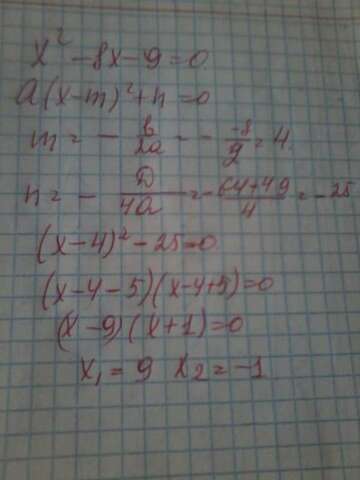 x² - 8x - 9 = 0
a(x-m)² + n = 0
m = - b/2a = - -8/2 = 4.
n = - D/4a = - 64+49/4 = -25
(x-4)² - 25 = 0
(x-4-5)(x-4+5) = 0
(x-9)(x+1) = 0
x₁ = 9 x₂ = -1